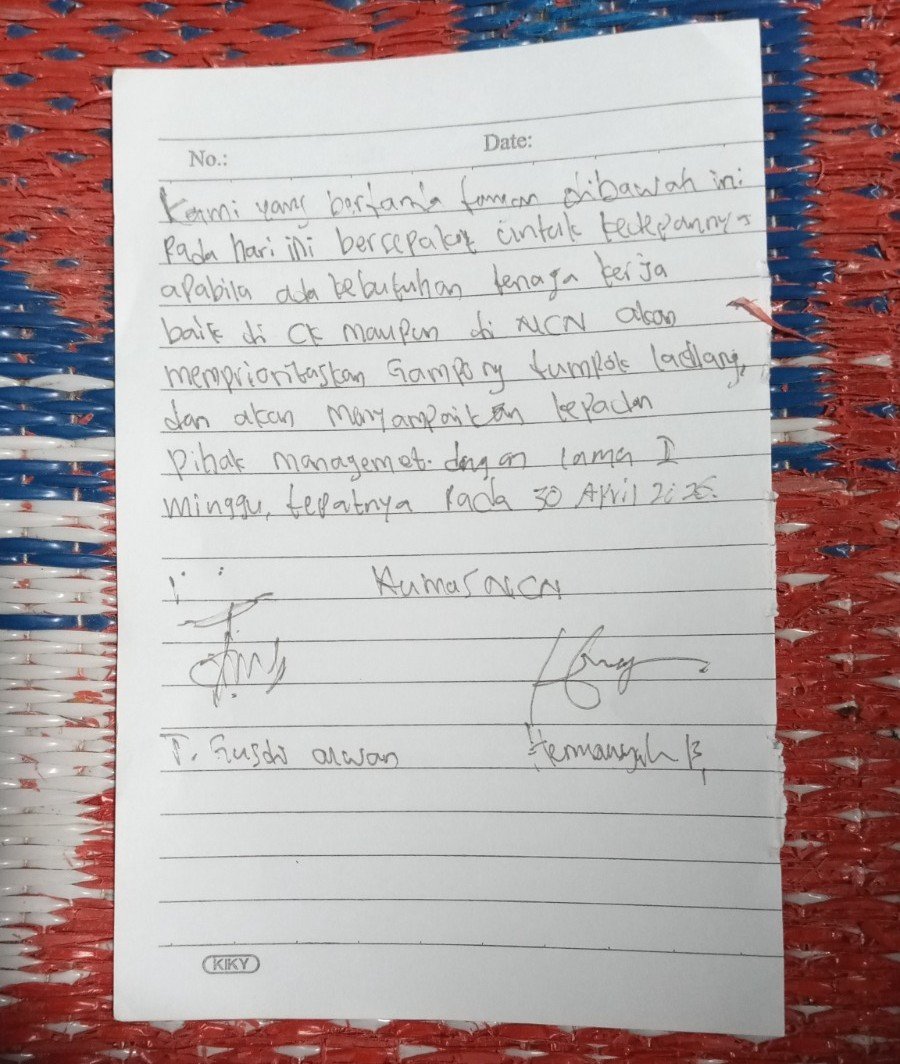 No.: Date:
Kami yang bertanda tangan dibawah ini
Pada hari ini bersepakat untuk kedepannya
apabila ada kebutuhan tenaga kerja
baik di CK maupun di NCN akan
memprioritaskan Gampong tumpok ladang,
dan akan menyampaikan kepada
pihak managemet. dngan lama I
minggu, tepatnya Pada 30 April
Humas NCN
T. Gusdi alwan Hermansyah
KIKY